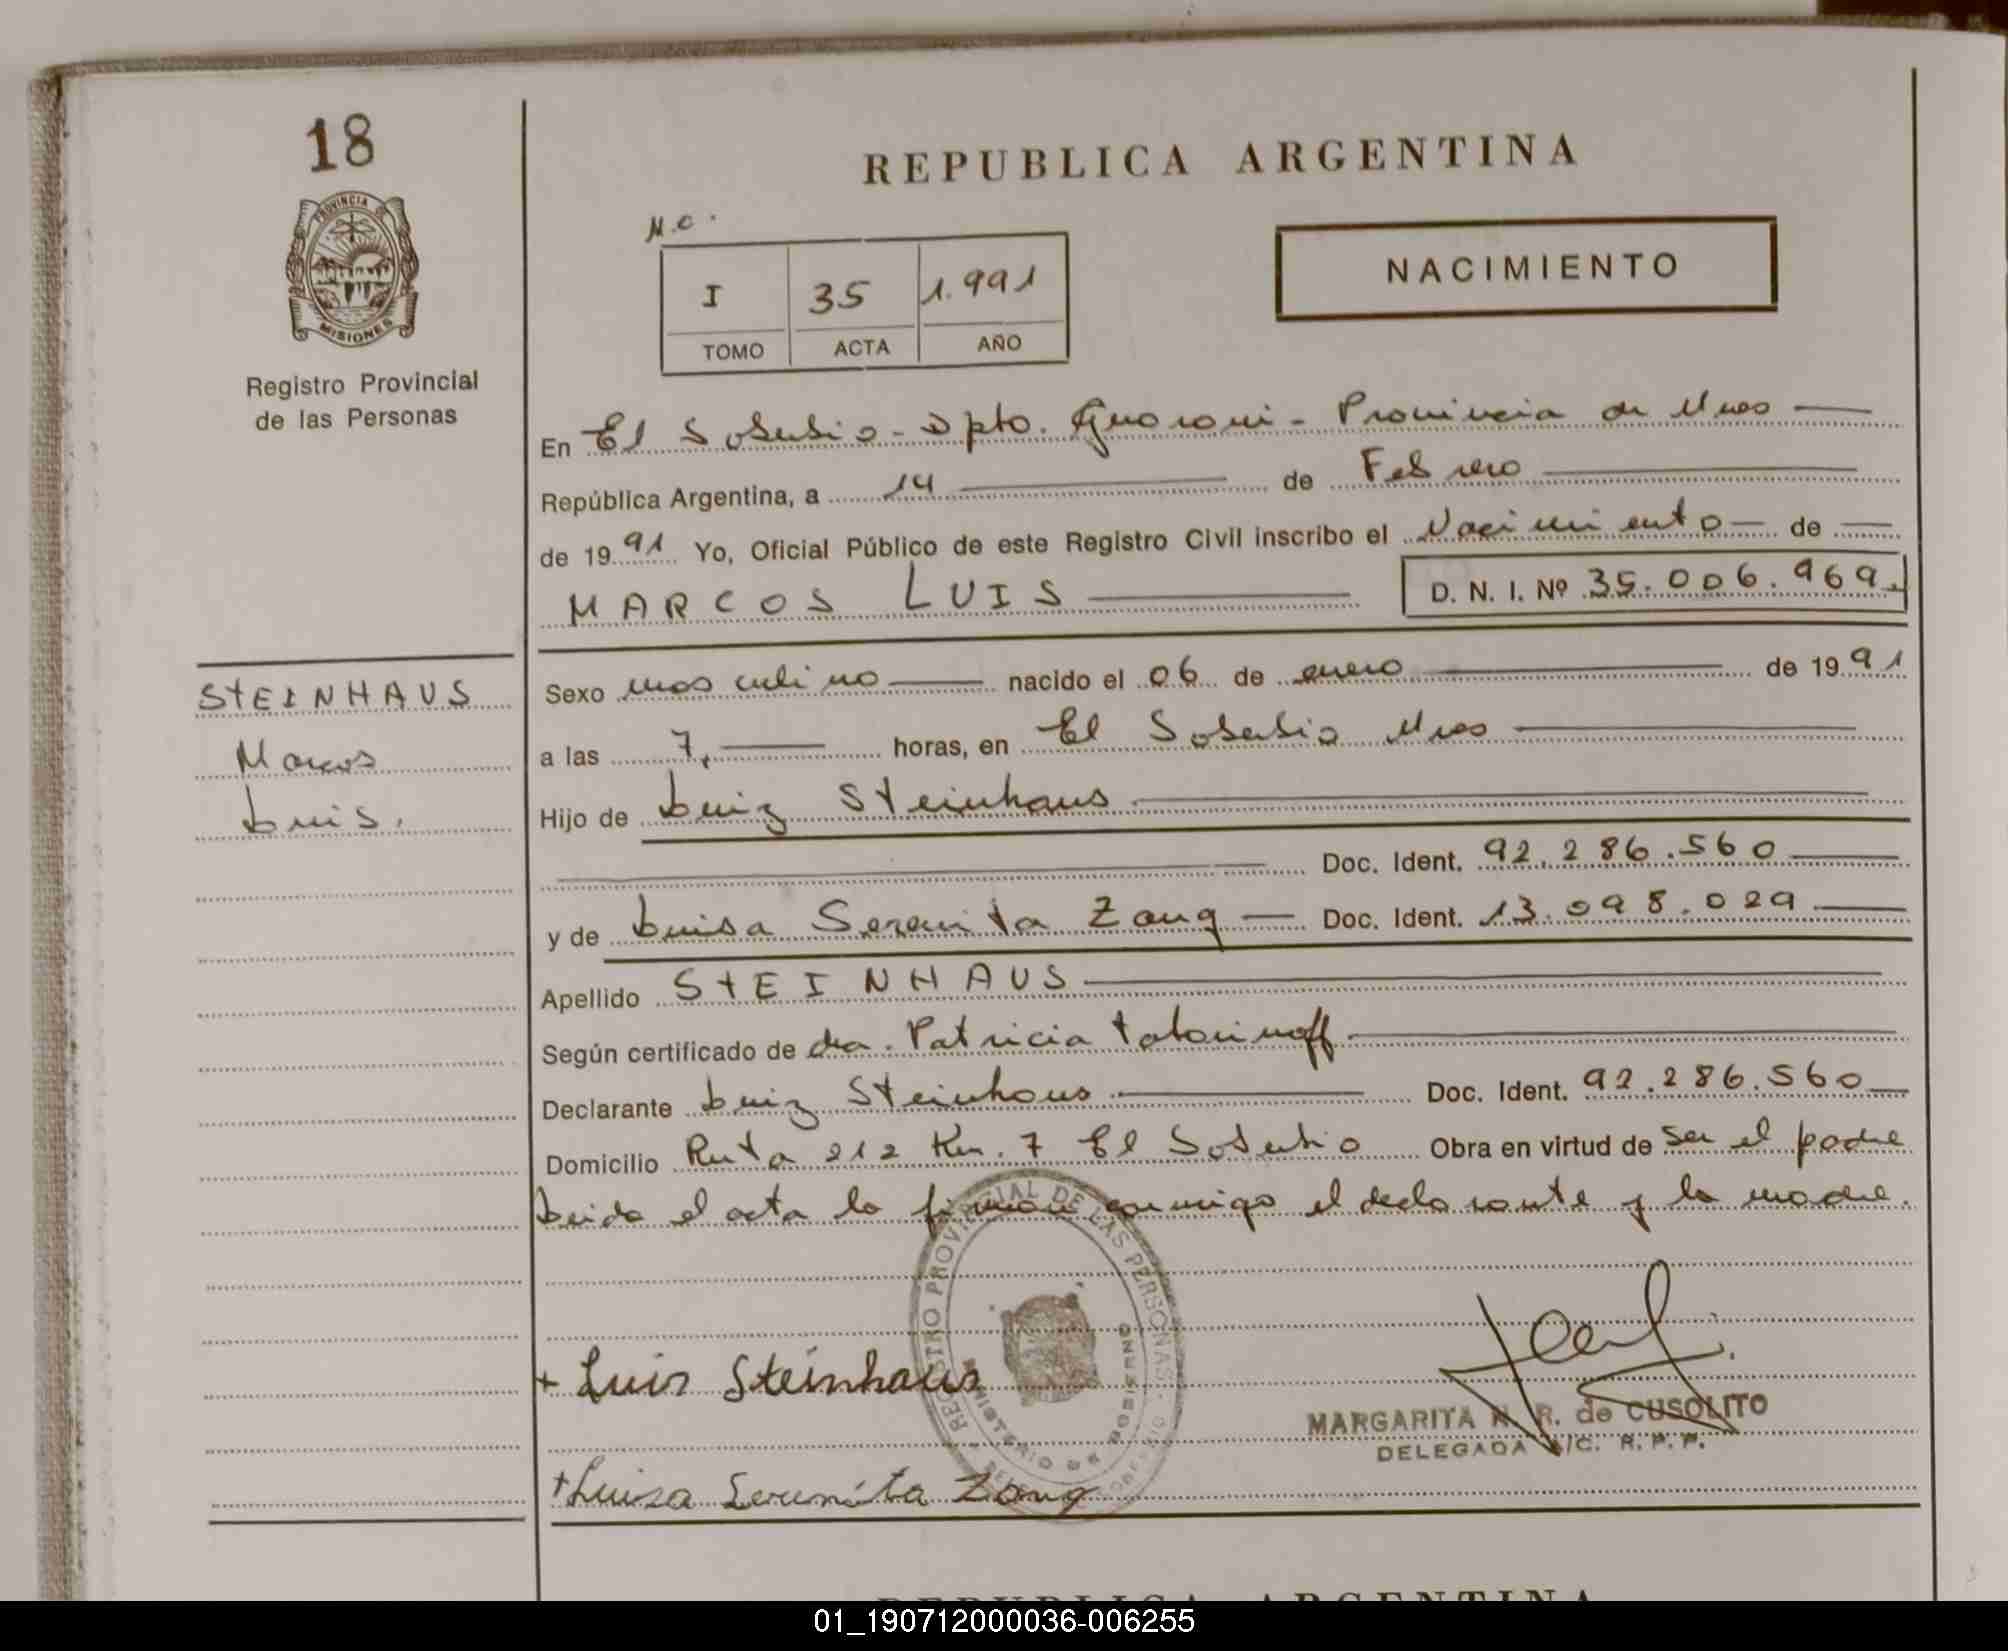 18
PROVINCIA DE
MISIONES
Registro Provincial
de las Personas
REPUBLICA ARGENTINA
N.C.
I 35 1.991
TOMO ACTA AÑO
NACIMIENTO
En El Soberbio - Dpto. Guarani - Provincia de Mnes
República Argentina, a 14 de Febrero
de 1991 Yo, Oficial Público de este Registro Civil inscribo el Nacimiento de
MARCOS LUIS D. N. I. Nº 35.006.969.
STEINHAUS
Marcos
Luis.
Sexo masculino nacido el 06 de enero de 1991
a las 7, horas, en El Soberbio Mnes
Hijo de Luiz Steinhaus
Doc. Ident. 92.286.560
y de Luisa Serenita Zang Doc. Ident. 13.098.029
Apellido STEINHAUS
Según certificado de dra. Patricia
Declarante Luiz Steinhaus Doc. Ident. 92.286.560
Domicilio Ruta 212 Km. 7 El Soberbio Obra en virtud de ser el padre
Leida el acta la firman conmigo el declarante y la madre.
REGISTRO PROVINCIAL DE LAS PERSONAS
MINISTERIO DE GOBIERNO
+ Luis Steinhaus
MARGARITA N. R. de CUSOLITO
DELEGADA A/C. R. P. P.
+ Luisa Serenita Zang
REPUBLICA ARGENTINA
01_190712000036-006255